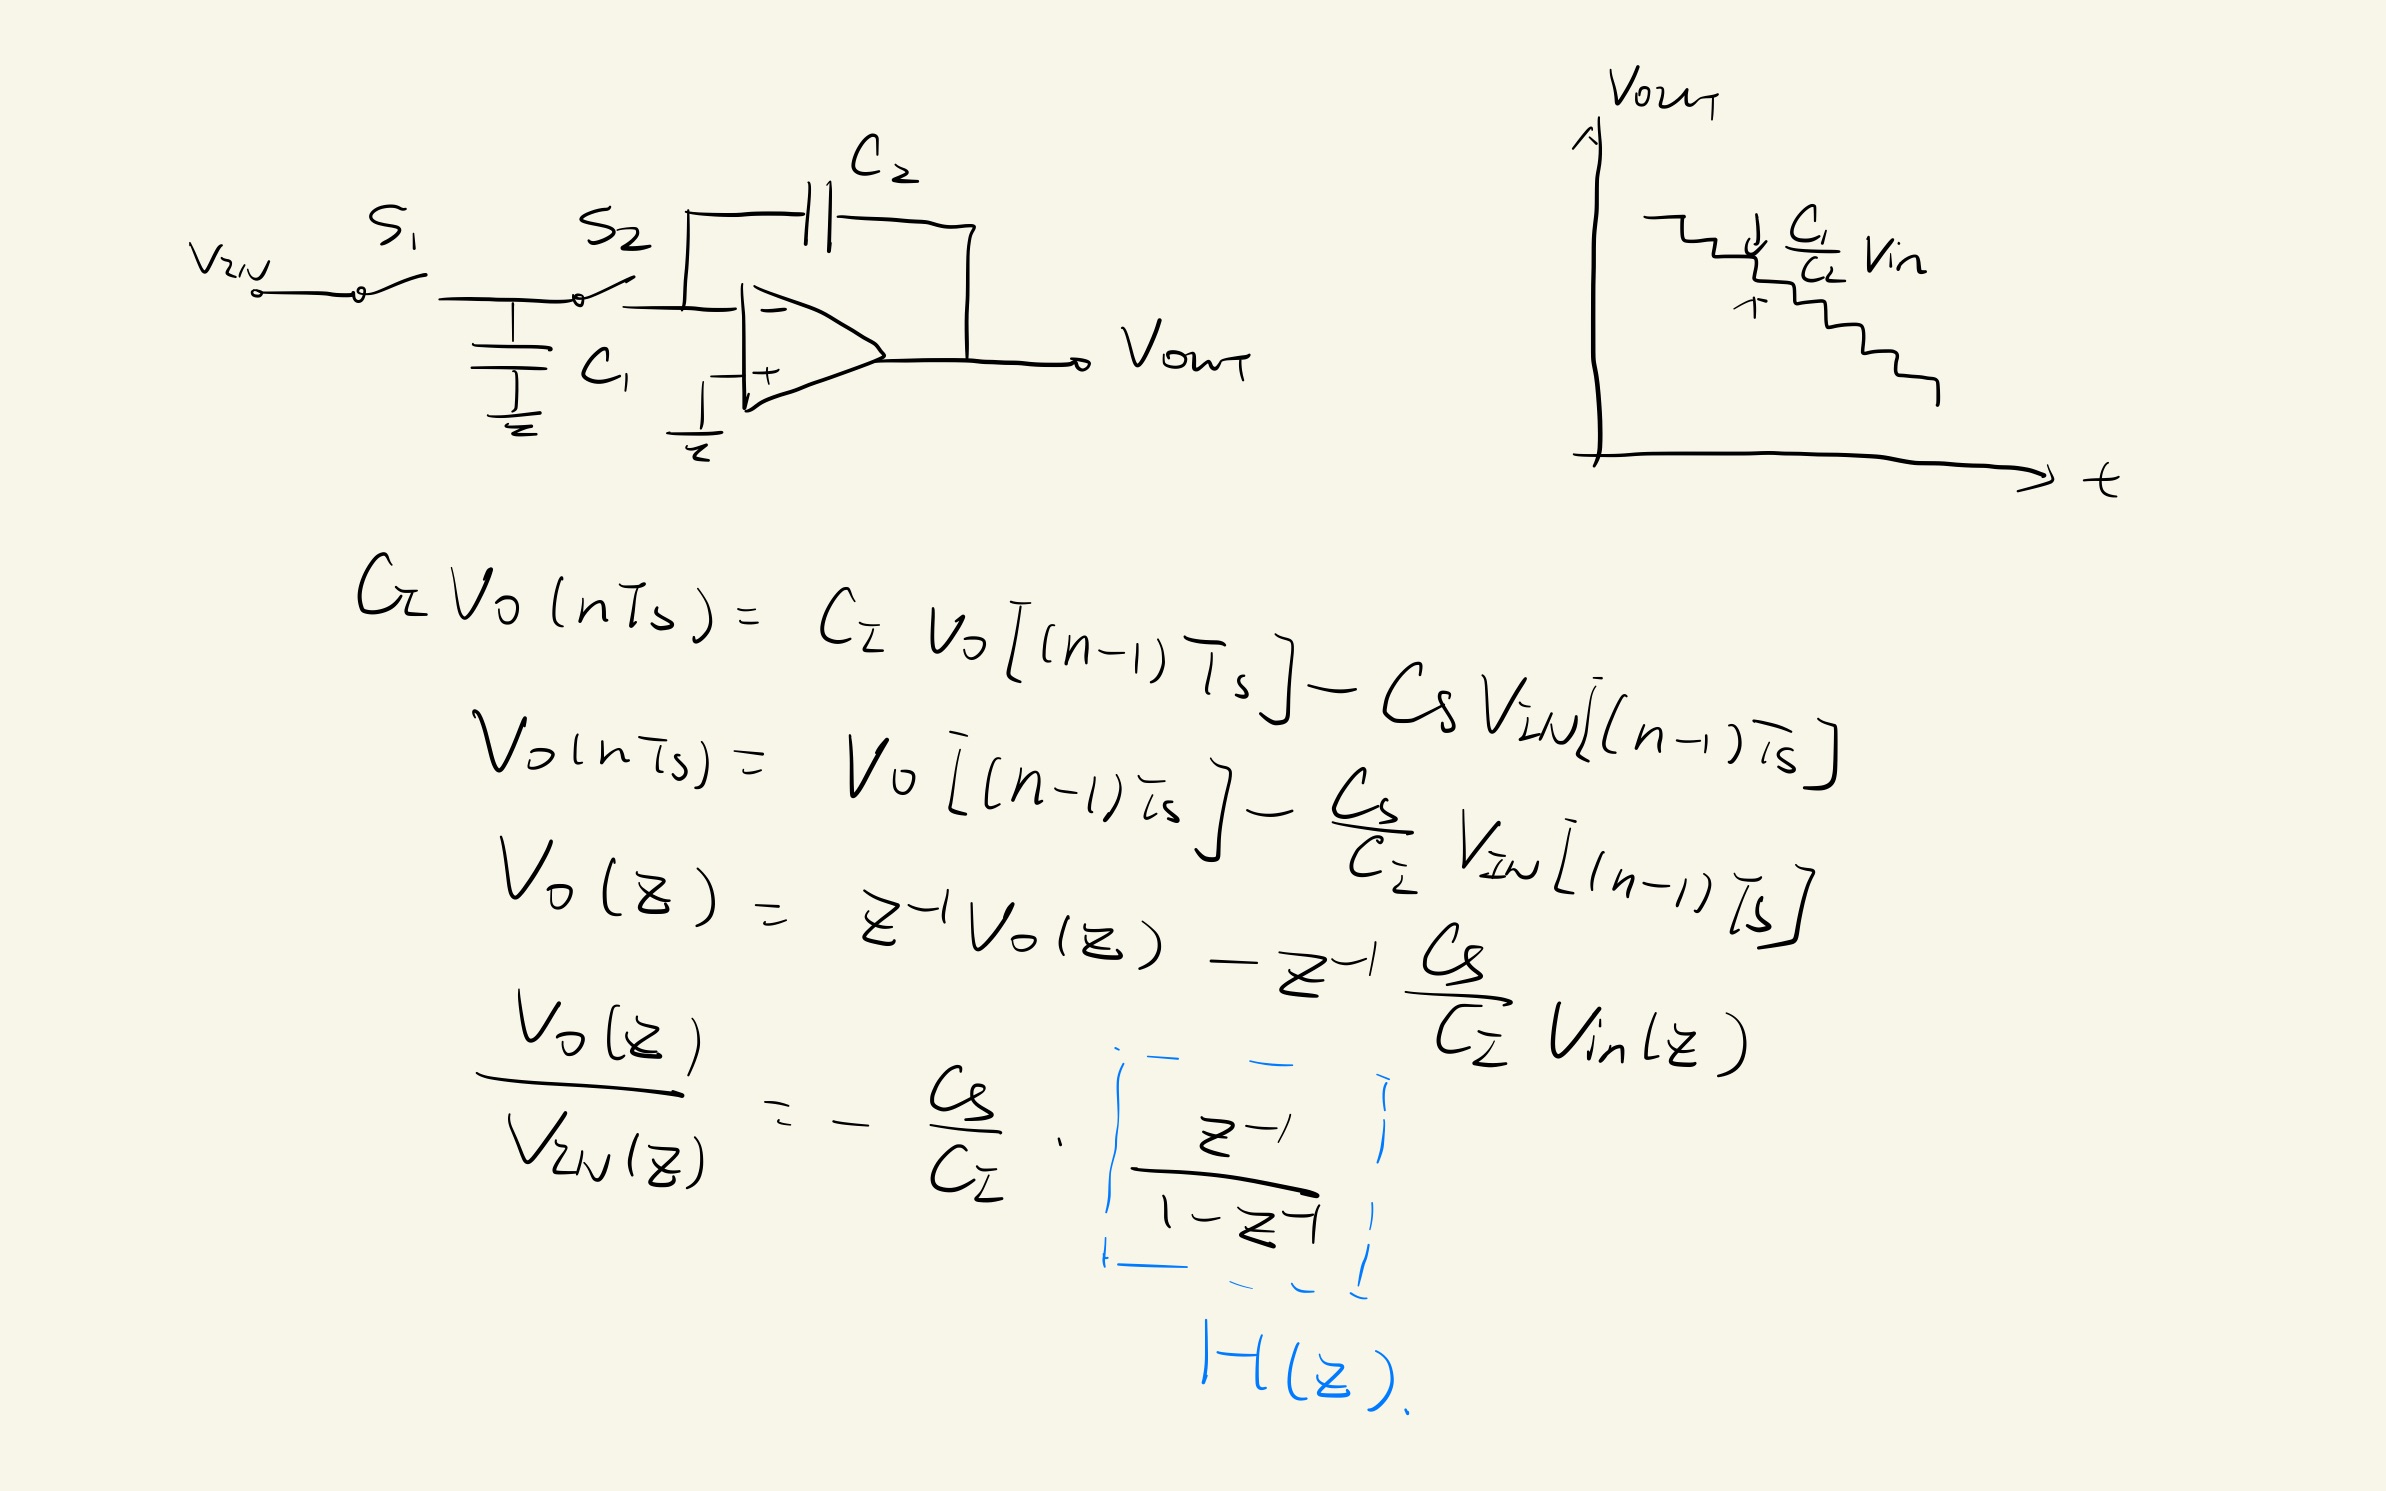 V_IN
S₁
S₂
C₂
C₁
−
+
V_OUT
V_OUT
C₁/C₂ Vin
t
C_I V_O (nTs) = C_I V_O [(n−1) Ts] − Cs V_IN [(n−1) Ts]
V_O (nTs) = V_O [(n−1) Ts] − Cs/C_I V_IN [(n−1) Ts]
V_O (z) = z⁻¹ V_O (z) − z⁻¹ Cs/C_I Vin (z)
V_O (z) / V_IN (z) = − Cs/C_I · z⁻¹ / 1 − z⁻¹
H (z).